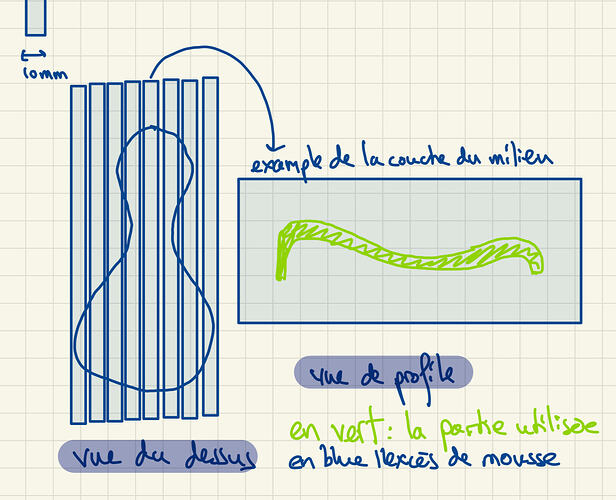 10mm
example de la couche du milieu
vue de profile
en vert : la partie utilisée
en blue l'excès de mousse
vue du dessus